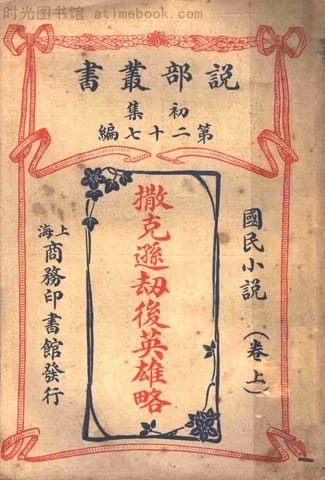 时光图书馆 atimebook.com
説部叢書
初集
第二十七編
國民小説 (卷上)
撒克遜劫後英雄略
上海
商務印書館發行